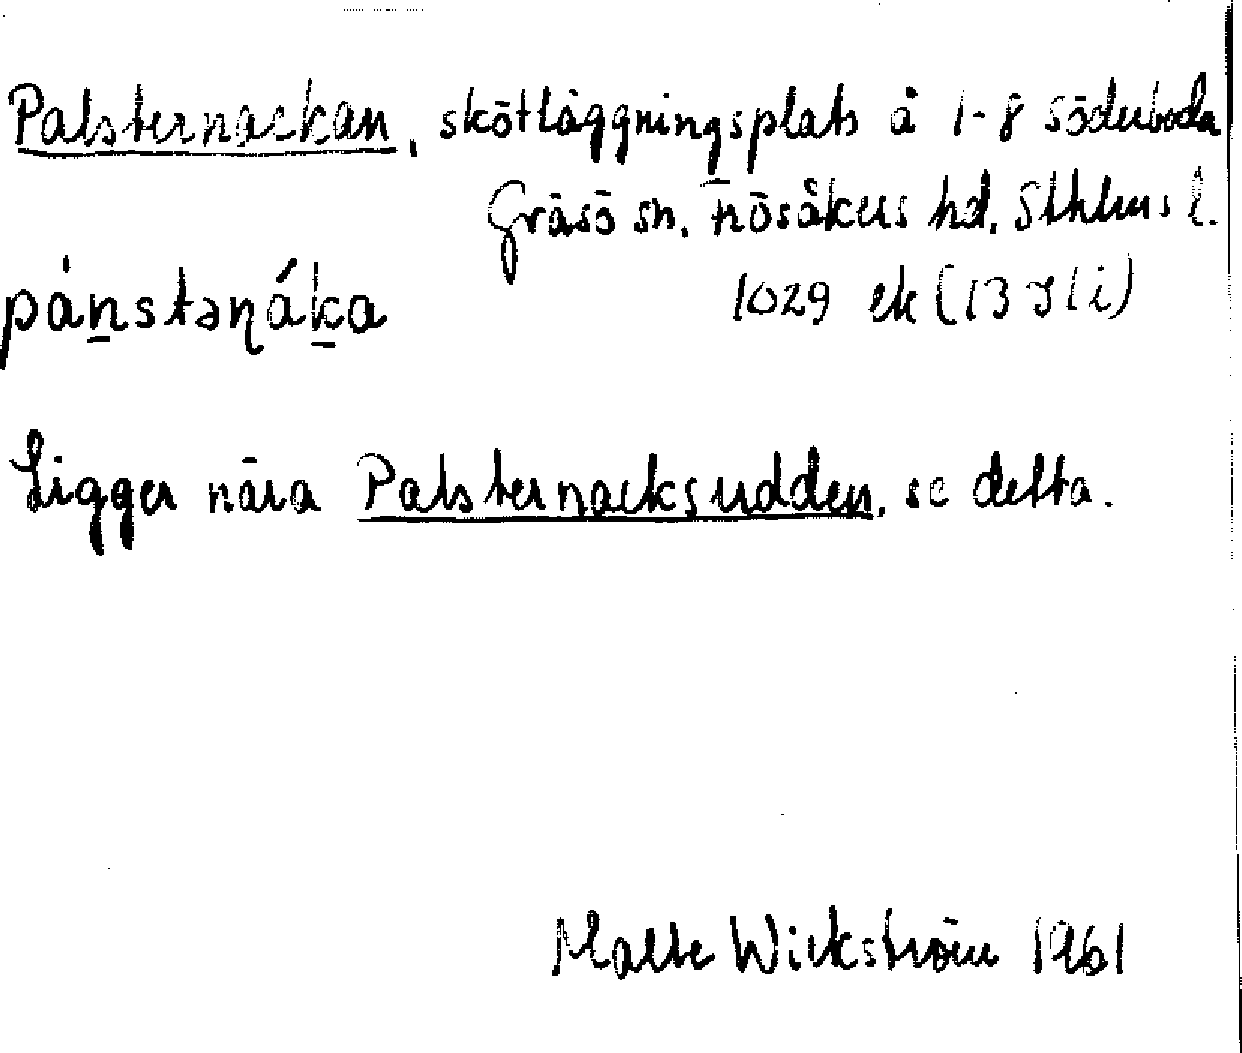 Palsternackan, skötläggningsplats å 1-8 Söderboda
Gräsö sn. Frösåkers hd. Sthlms l.
pá̀n̲stəɳák̲a
1029 ek (13 I 1 i)
Ligger nära Palsternacksudden, se detta.
Malte Wickström 1961